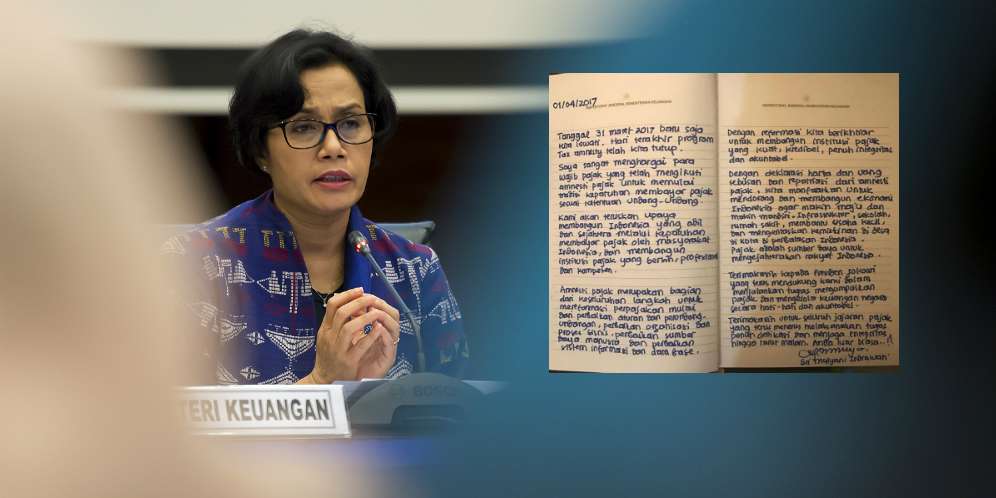 TERI KEUANGAN
BOSCH
01/04/2017
KEMENTERIAN KEUANGAN
Tanggal 31 maret 2017 baru saja
kita lewati. Hari terakhir program
Tax amnesty telah kita tutup.
Saya sangat menghargai para
wajib pajak yang telah mengikuti
amnesti pajak untuk memulai
tradisi kepatuhan membayar pajak
sesuai ketentuan undang-undang.
Kami akan teruskan upaya
membangun Indonesia yang adil
dan sejahtera melalui kepatuhan
membayar pajak oleh masyarakat
Indonesia, dan membangun
institusi pajak yang bersih, profesional
dan kompeten.
Amnesti pajak merupakan bagian
dari keseluruhan langkah untuk
mereformasi perpajakan mulai
dari perbaikan aturan dan perundang
undangan, perbaikan organisasi dan
proses bisnis, perbaikan sumber
daya manusia dan perbaikan
sistem informasi dan data base.
Dengan reformasi kita berikhtiar
untuk membangun institusi pajak
yang kuat, kredibel, penuh integritas
dan akuntabel.
Dengan deklarasi harta dan uang
tebusan dan repatriasi dari amnesti
pajak, kita manfaatkan untuk
mendorong dan membangun ekonomi
Indonesia agar makin maju dan
makin mandiri. Infrastruktur, sekolah,
rumah sakit, membantu usaha kecil,
dan mengentaskan kemiskinan di desa
di kota di perbatasan Indonesia.
Pajak adalah sumber daya untuk
mensejahterakan rakyat Indonesia.
Terimakasih kepada Presiden Jokowi
yang terus mendukung kami dalam
menjalankan tugas mengumpulkan
pajak dan mengelola keuangan negara
secara hati-hati dan akuntabel.
Terimakasih untuk seluruh jajaran pajak
yang terus menerus melaksanakan tugas
penuh dedikasi dan menjaga integritas
hingga larut malam. Anda luar biasa..!!
Sri Mulyani Indrawati